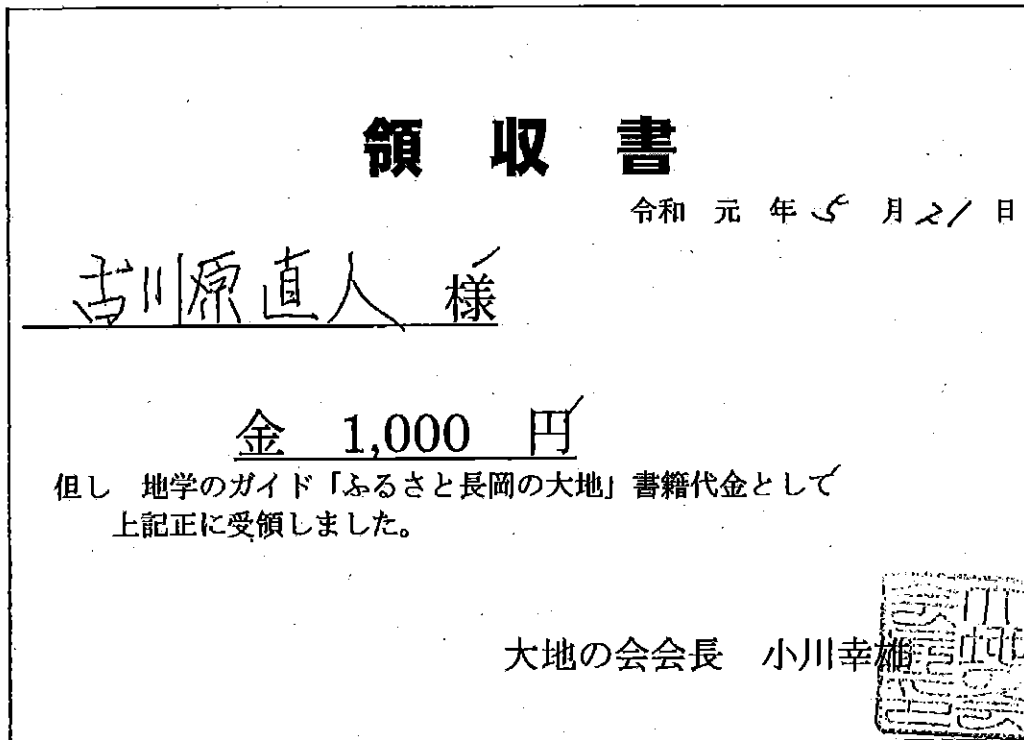 領収書
令和 元 年 5 月 21 日
古川原直人 様
金 1,000 円
但し 地学のガイド「ふるさと長岡の大地」書籍代金として
上記正に受領しました。
大地の会会長 小川幸雄